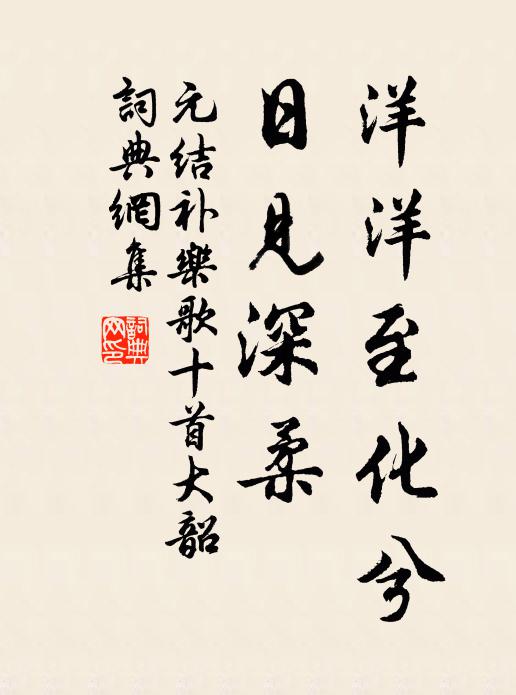 洋洋至化兮
日見深柔
元结补樂歌十首大韶
詞典網集
詞典网印